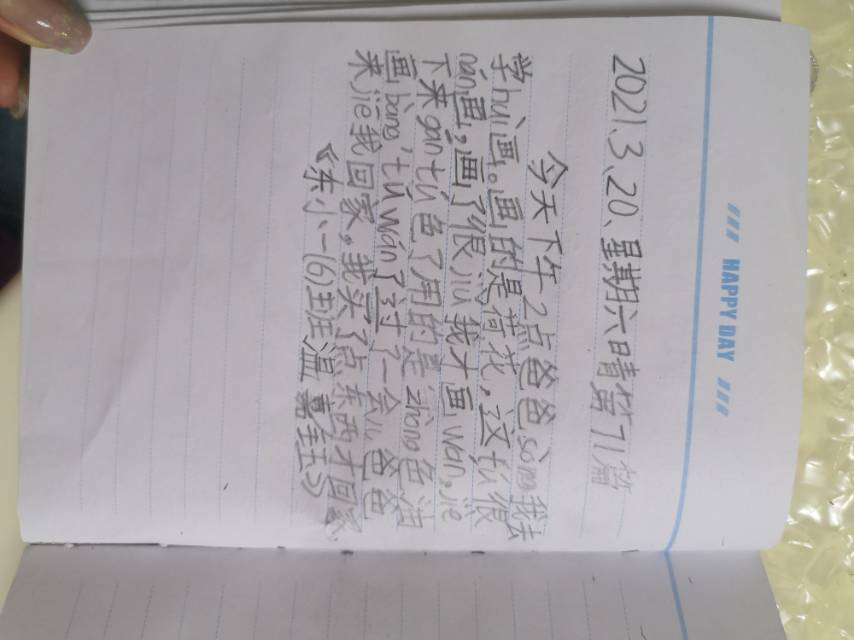 HAPPY DAY
2021.3.20、星期六晴第71篇
今天下午2点爸爸sòng我去
学huì画。画的是荷花，这tú很
nán画。画了很jiǔ我才画wán，jiē
下来gāntú色了用的是zhāng色油
画bàng，tú wán了过了一会儿爸爸
来jiē我回家。我买了点东西才回家
《朱小一(6)班温嘉钰》